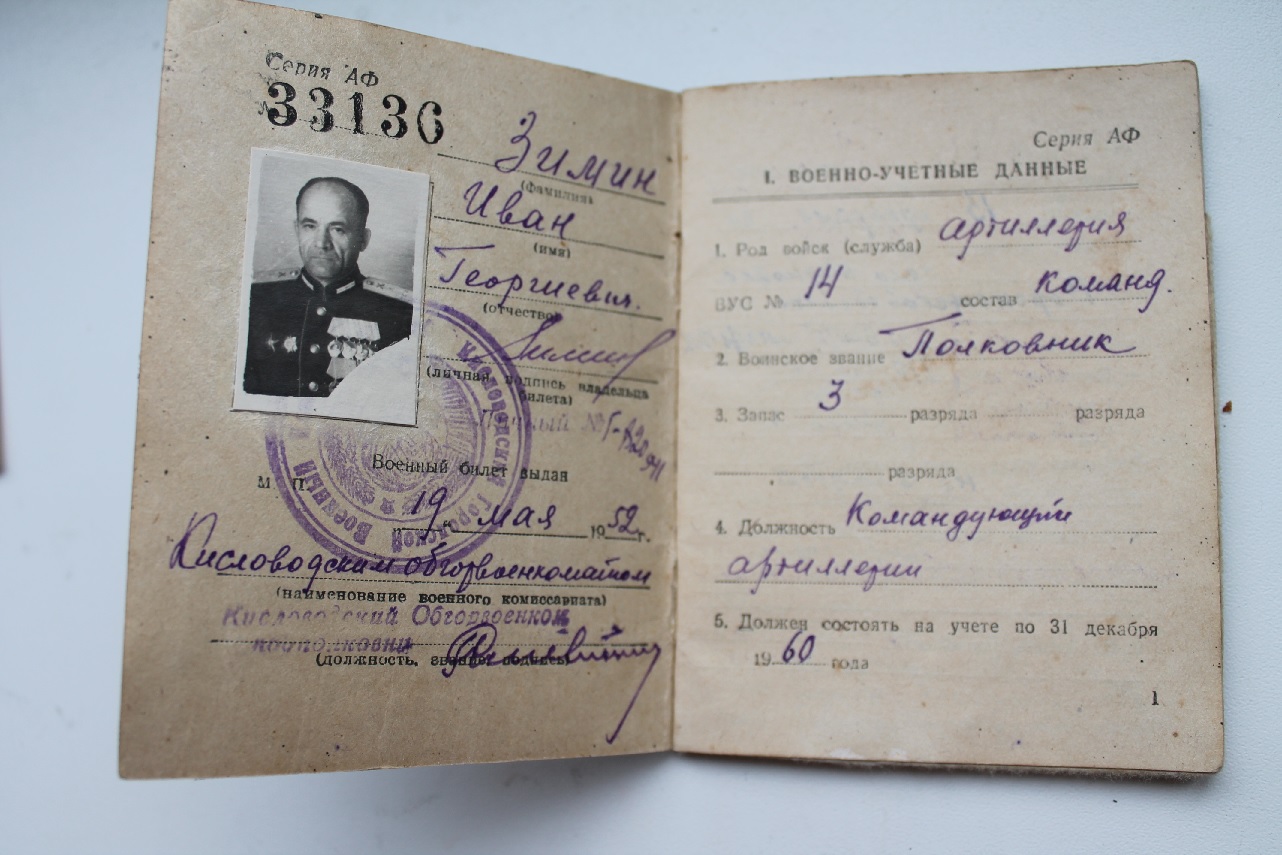 Серия АФ
№ 33136
Зимин
(фамилия)
Иван
(имя)
Георгиевич.
(отчество)
(личная подпись владельца
билета)
Личный №
Военный билет выдан
М. П.
"19" мая 1952 г.
Кисловодским обгорвоенкоматом
(наименование военного комиссариата)
Кисловодский Обгорвоенком
(должность, звание, подпись)
Кисловодский Городской Военный
Серия АФ
I. ВОЕННО-УЧЕТНЫЕ ДАННЫЕ
1. Род войск (служба) артиллерия
ВУС № 14 состав команд.
2. Воинское звание Полковник
3. Запас 3 разряда разряда
разряда
4. Должность Командующий
артиллерии
5. Должен состоять на учете по 31 декабря
1960 года
1